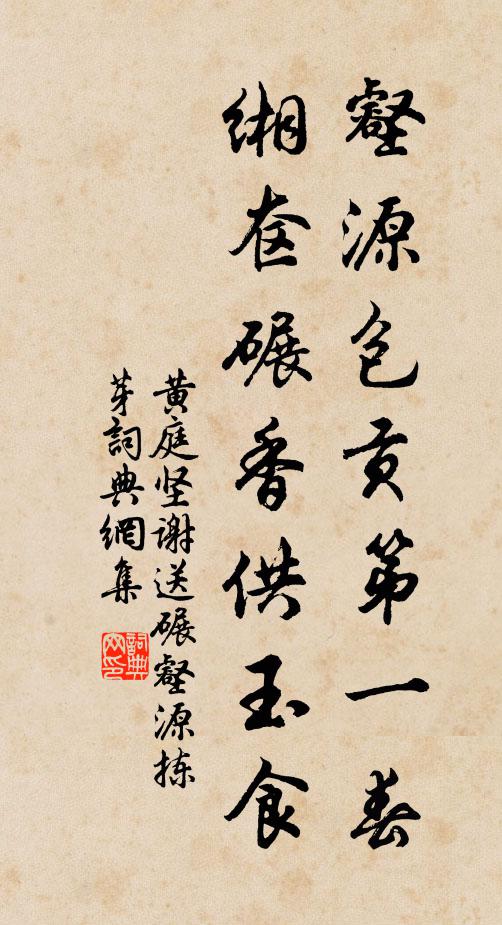 壑源包贡第一春
缃奁碾香供玉食
黄庭坚谢送碾壑源拣
芽詞典網集
詞典网印